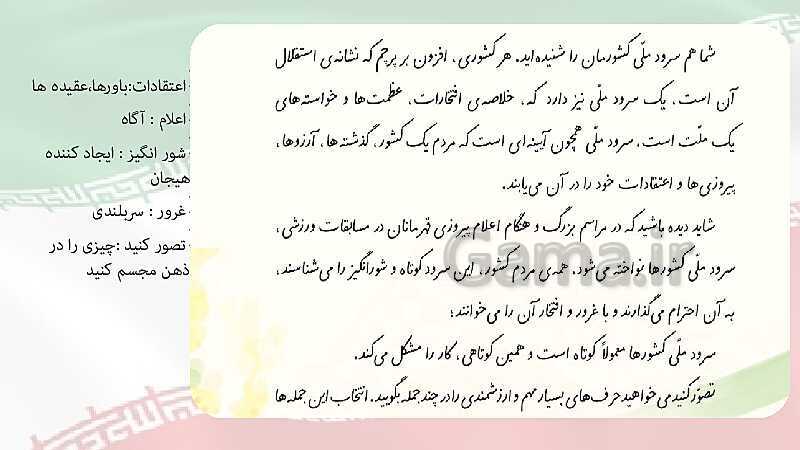 شما هم سرود ملّی کشورمان را شنیده‌اید. هر کشوری، افزون بر پرچم که نشانه‌ی استقلال
آن است، یک سرود ملّی نیز دارد که، خلاصه‌ی افتخارات، عظمت‌ها و خواسته‌های
یک ملّت است. سرود ملّی همچون آیینه‌ای است که مردم یک کشور، گذشته‌ها، آرزوها،
پیروزی‌ها و اعتقادات خود را در آن می‌یابند.
شاید دیده باشید که در مراسم بزرگ و هنگام اعلام پیروزی قهرمانان در مسابقات ورزشی،
سرود ملّی کشورها نواخته می‌شود. همه‌ی مردم کشور، این سرود کوتاه و شورانگیز را می‌شناسند،
به آن احترام می‌گذارند و با غرور و افتخار آن را می‌خوانند؛
سرود ملّی کشورها معمولاً کوتاه است و همین کوتاهی، کار را مشکل می‌کند.
تصوّر کنید می‌خواهید حرف‌های بسیار مهم و ارزشمندی را در چند جمله بگویید. انتخاب این جمله‌ها
اعتقادات:باورها،عقیده ها
اعلام : آگاه
شور انگیز : ایجاد کننده
هیجان
غرور : سربلندی
تصور کنید :چیزی را در
ذهن مجسم کنید
Gama.ir